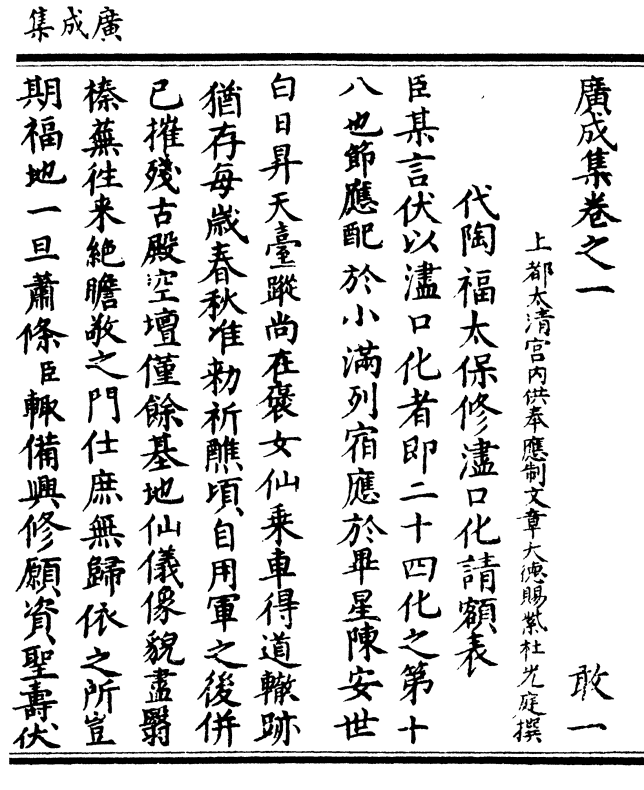 廣成集
廣成集卷之一　敢一
上都太清宮內供奉應制文章大德賜紫杜光庭撰
代陶福太保修濜口化請額表
臣某言伏以濜口化者即二十四化之第十
八也節應配於小滿列宿應於畢星陳安世
白日昇天臺蹤尚在褒女仙乘車得道轍跡
猶存每歲春秋准勑祈醮頃自用軍之後併
已摧殘古殿空壇僅餘基地仙儀像貌盡翳
榛蕪往来絶瞻敬之門仕庶無歸依之所豈
期福地一旦蕭條臣輙備興修願資聖壽伏